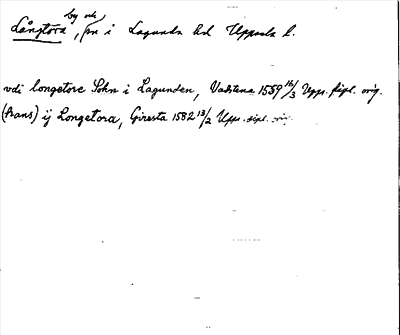 Långtora, by och sn i Lagunda hd Uppsala l.
vdi longetore Sokn i Lagunden, Vadstena 1559 16/3 Upps. dipl. orig.
(trans) ij Longetora, Giresta 1582 13/2 Upps. dipl. orig.